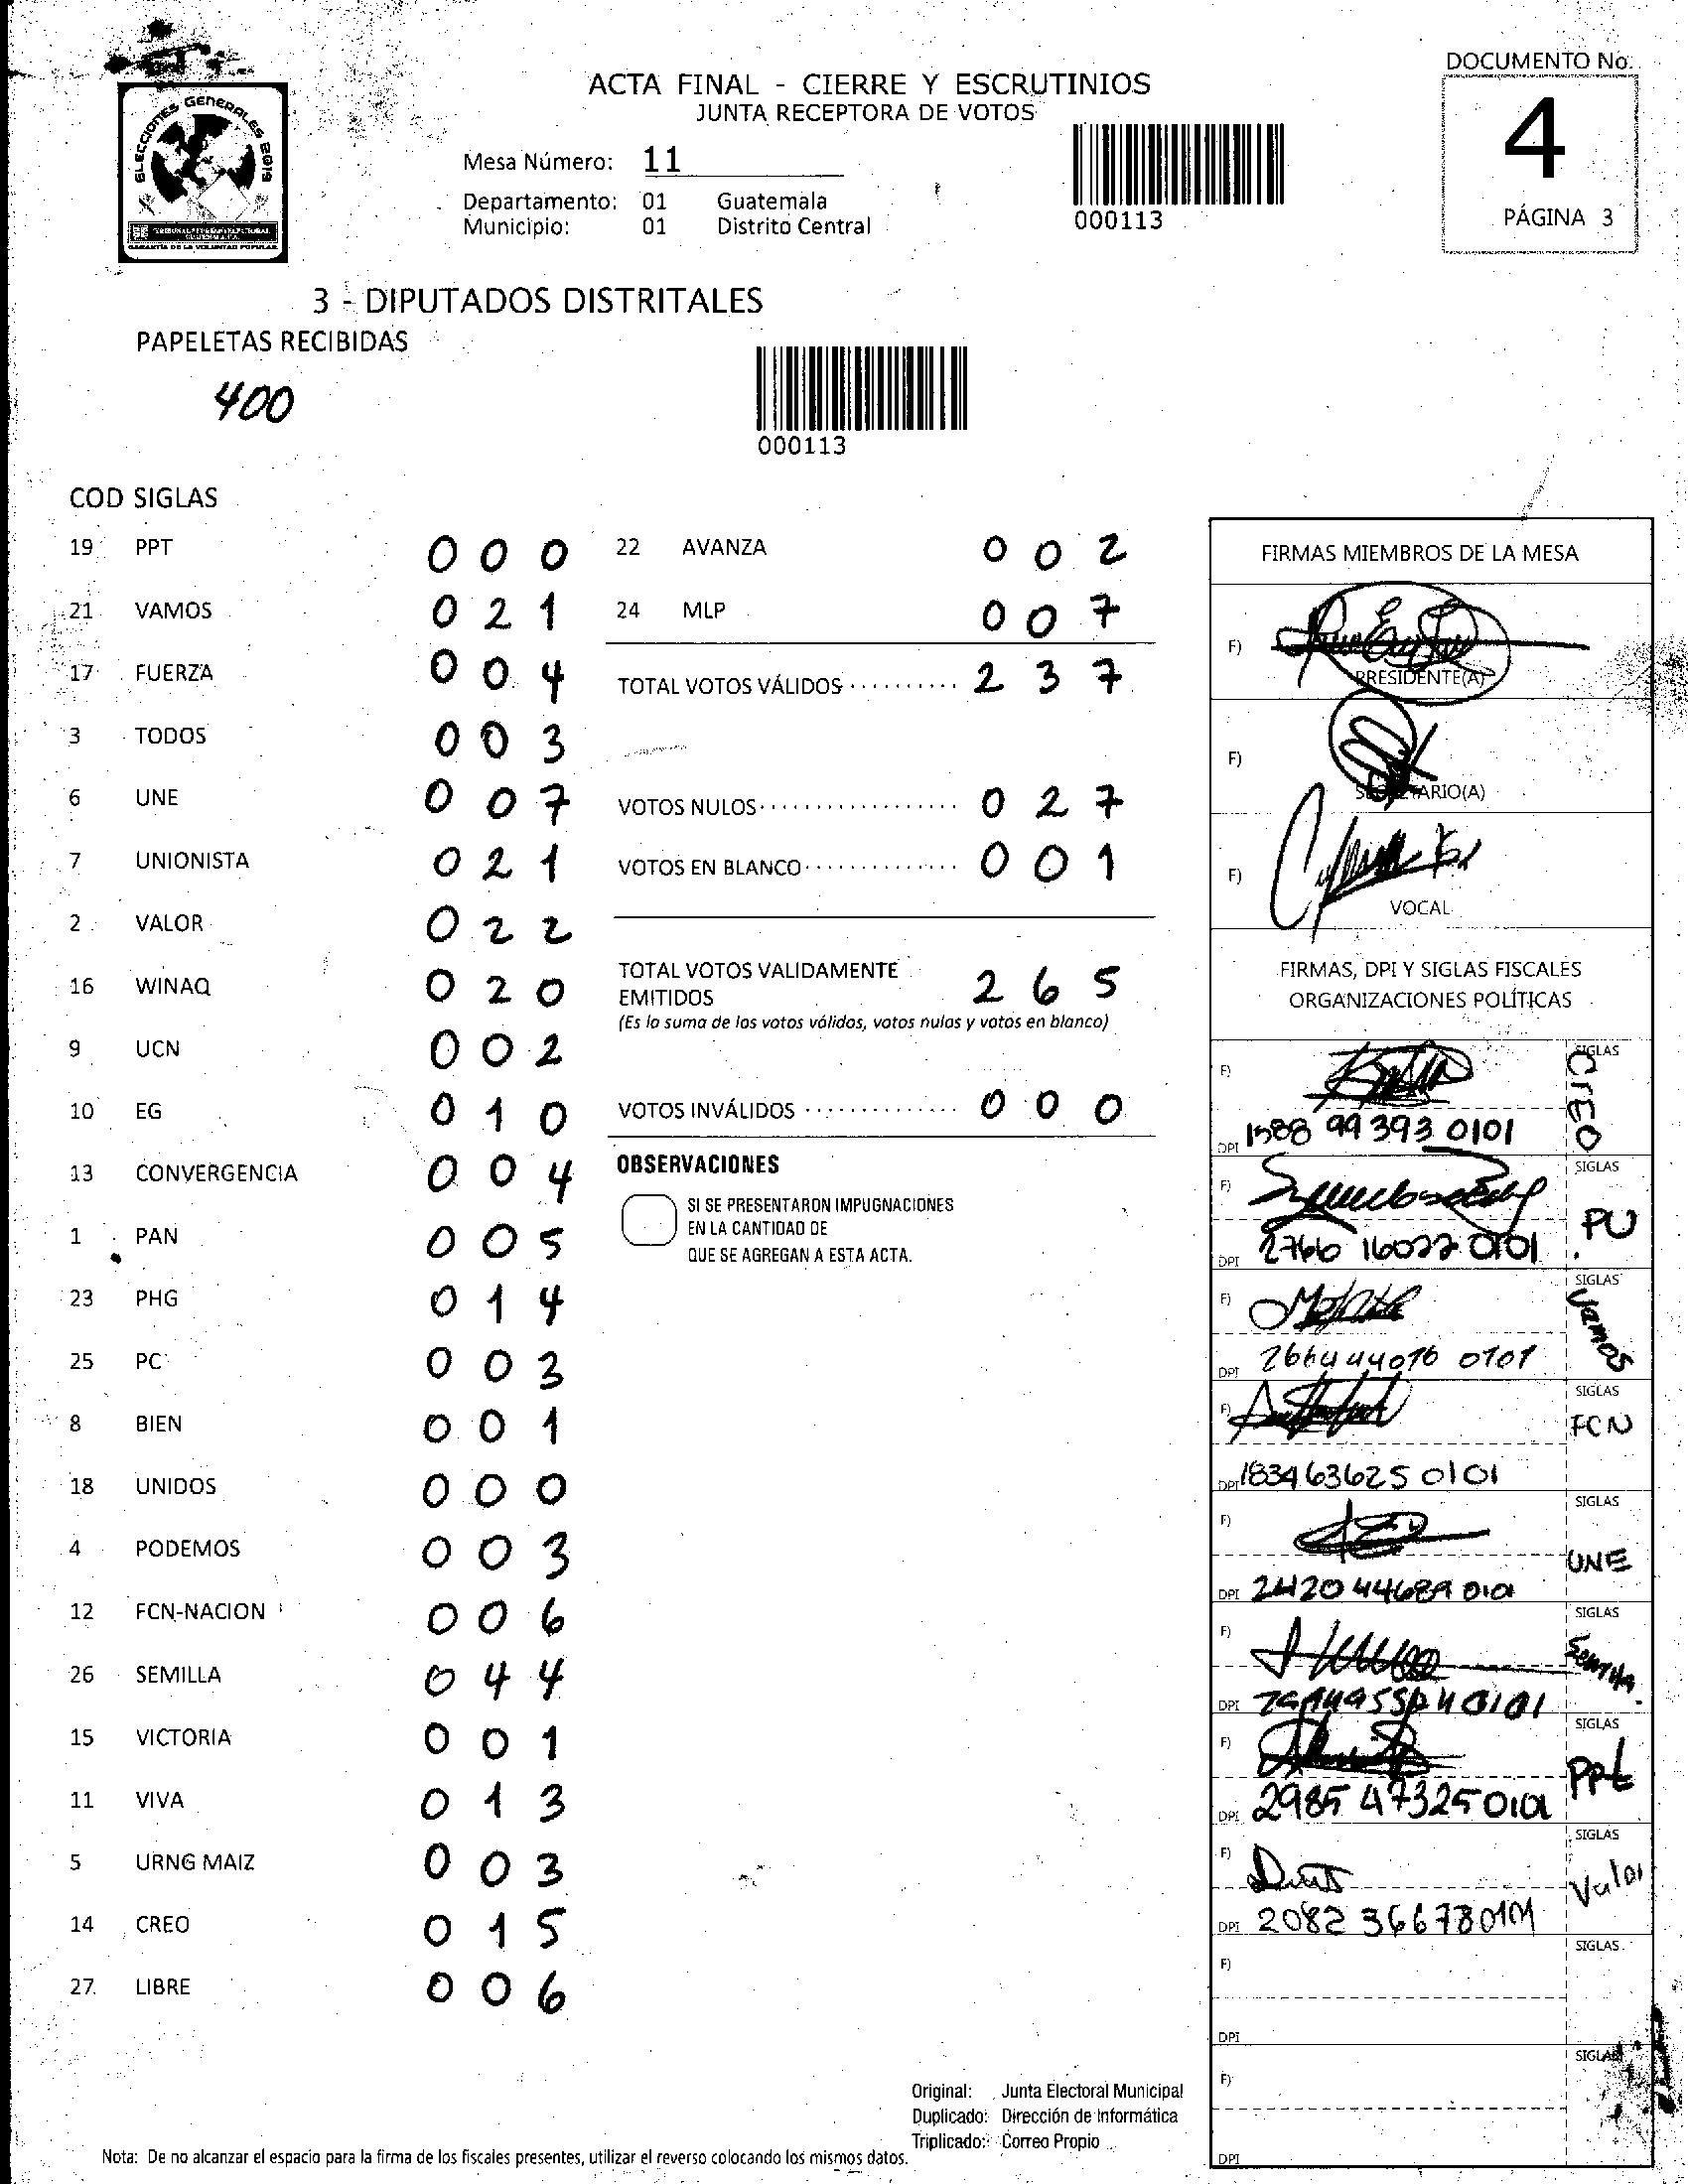 ELECCIONES GENERALES 2019
TRIBUNAL SUPREMO ELECTORAL
GUATEMALA, C.A.
GARANTÍA DE LA VOLUNTAD POPULAR
ACTA FINAL - CIERRE Y ESCRUTINIOS
JUNTA RECEPTORA DE VOTOS
Mesa Número: 11
Departamento: 01 Guatemala
Municipio: 01 Distrito Central
000113
DOCUMENTO No.
4
PÁGINA 3
3 - DIPUTADOS DISTRITALES
PAPELETAS RECIBIDAS
400
000113
COD SIGLAS
19 PPT 0 0 0
21 VAMOS 0 2 1
17 FUERZA 0 0 4
3 TODOS 0 0 3
6 UNE 0 0 7
7 UNIONISTA 0 2 1
2 VALOR 0 2 2
16 WINAQ 0 2 0
9 UCN 0 0 2
10 EG 0 1 0
13 CONVERGENCIA 0 0 4
1 PAN 0 0 5
23 PHG 0 1 4
25 PC 0 0 3
8 BIEN 0 0 1
18 UNIDOS 0 0 0
4 PODEMOS 0 0 3
12 FCN-NACION 0 0 6
26 SEMILLA 0 4 4
15 VICTORIA 0 0 1
11 VIVA 0 1 3
5 URNG MAIZ 0 0 3
14 CREO 0 1 5
27 LIBRE 0 0 6
22 AVANZA 0 0 2
24 MLP 0 0 7
TOTAL VOTOS VÁLIDOS .......... 2 3 7
VOTOS NULOS .................. 0 2 7
VOTOS EN BLANCO .............. 0 0 1
TOTAL VOTOS VALIDAMENTE
EMITIDOS 2 6 5
(Es la suma de los votos válidos, votos nulos y votos en blanco)
VOTOS INVÁLIDOS .............. 0 0 0
OBSERVACIONES
SI SE PRESENTARON IMPUGNACIONES
EN LA CANTIDAD DE
QUE SE AGREGAN A ESTA ACTA.
FIRMAS MIEMBROS DE LA MESA
F)
PRESIDENTE(A)
F)
SECRETARIO(A)
F)
VOCAL
FIRMAS, DPI Y SIGLAS FISCALES
ORGANIZACIONES POLÍTICAS
F) SIGLAS
CREO
DPI 1588 99393 0101
F) SIGLAS
PU
DPI 2766 16022 0101
F) SIGLAS
Vamos
DPI 2664 44076 0101
F) SIGLAS
FCN
DPI 1834 63625 0101
F) SIGLAS
UNE
DPI 2420 44689 0101
F) SIGLAS
Semilla
DPI
F) SIGLAS
PPt
DPI 2985 47325 0101
F) SIGLAS
Valor
DPI 2082 36678 0101
F) SIGLAS
DPI
F) SIGLAS
DPI
Original: Junta Electoral Municipal
Duplicado: Dirección de Informática
Triplicado: Correo Propio
Nota: De no alcanzar el espacio para la firma de los fiscales presentes, utilizar el reverso colocando los mismos datos.